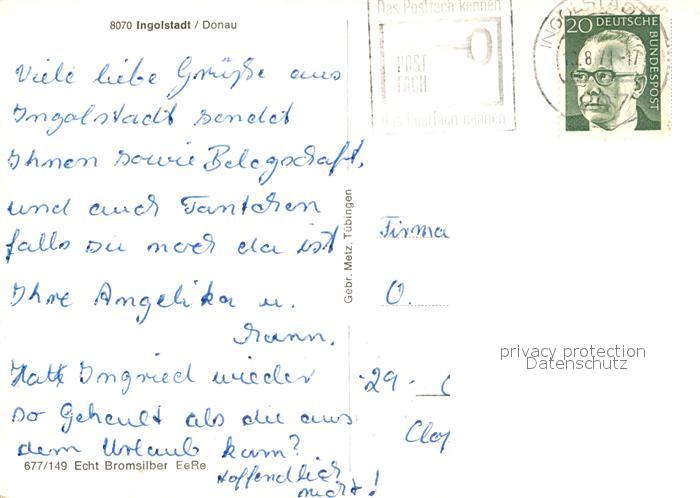 8070 Ingolstadt / Donau
Das Postfach kennen
POST
FACH
das Postfach nennen
INGOLSTADT
8.71-17
20 DEUTSCHE
BUNDESPOST
Viele liebe Grüße aus
Ingolstadt sendet
Ihnen sowie Belegschaft,
und auch Tantchen
falls sie noch da ist
Ihre Angelika u.
Mann.
Hatt Ingried wieder
so Geheult als die aus
dem Urlaub kam?
Hoffendlich
nicht!
677/149 Echt Bromsilber EeRe
Gebr. Metz, Tübingen
Firma
O.
29 -
Clop
privacy protection
Datenschutz